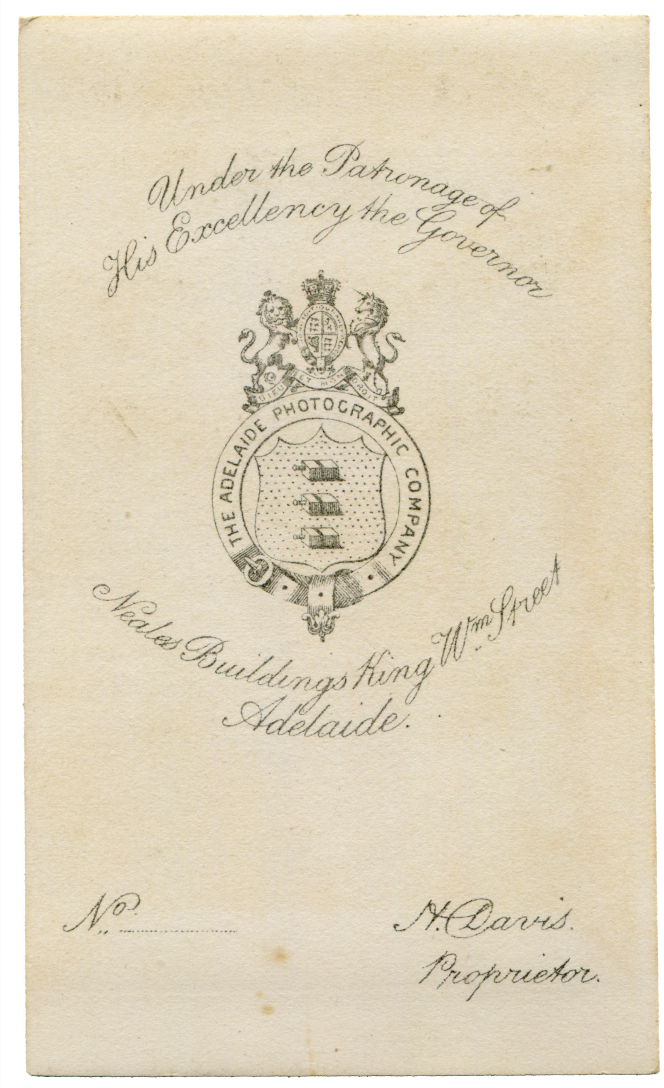 Under the Patronage of
His Excellency the Governor
DIEU ET MON DROIT
THE ADELAIDE PHOTOGRAPHIC COMPANY
Neales Buildings King Wm Street
Adelaide.
No
H. Davis.
Proprietor.